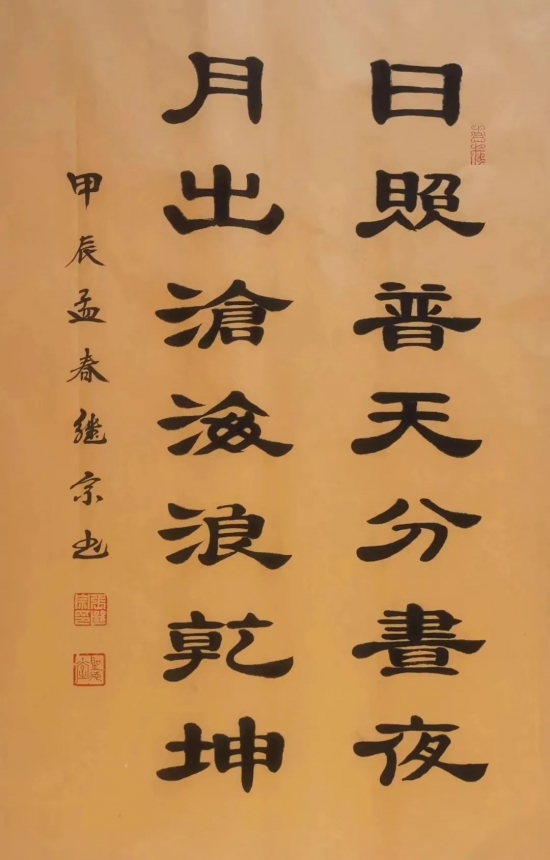 日照普天分晝夜
月出滄海浪乾坤
甲辰孟春继宗书